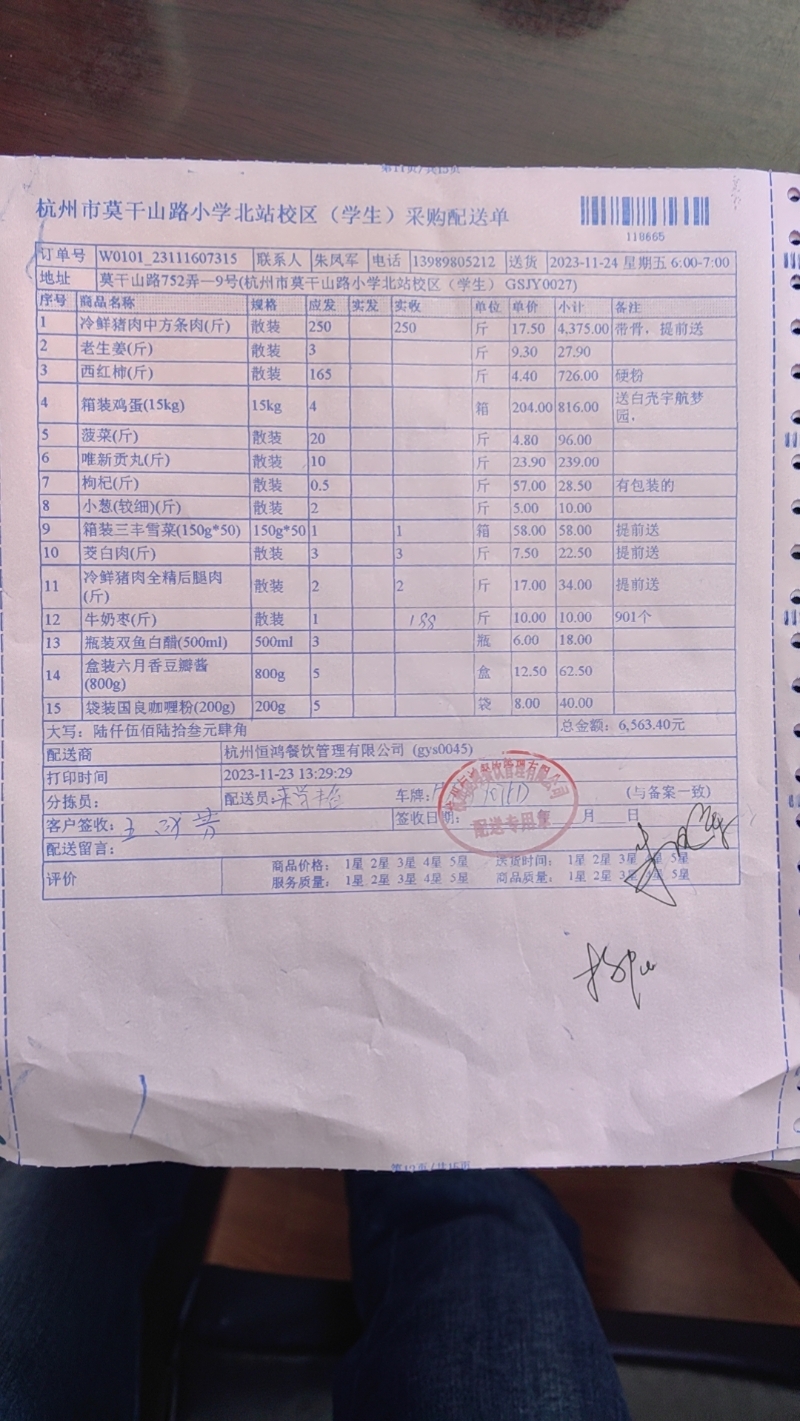 杭州市莫干山路小学北站校区（学生）采购配送单
118665
订单号 W0101_23111607315 联系人 朱凤军 电话 13989805212 送货 2023-11-24 星期五 6:00-7:00
地址 莫干山路752弄一9号(杭州市莫干山路小学北站校区（学生） GSJY0027)
序号 商品名称 规格 应发 实发 实收 单位 单价 小计 备注
1 冷鲜猪肉中方条肉(斤) 散装 250 250 斤 17.50 4,375.00 带骨，提前送
2 老生姜(斤) 散装 3 斤 9.30 27.90
3 西红柿(斤) 散装 165 斤 4.40 726.00 硬粉
4 箱装鸡蛋(15kg) 15kg 4 箱 204.00 816.00 送白壳宇航梦
园，
5 菠菜(斤) 散装 20 斤 4.80 96.00
6 唯新贡丸(斤) 散装 10 斤 23.90 239.00
7 枸杞(斤) 散装 0.5 斤 57.00 28.50 有包装的
8 小葱(较细)(斤) 散装 2 斤 5.00 10.00
9 箱装三丰雪菜(150g*50) 150g*50 1 1 箱 58.00 58.00 提前送
10 茭白肉(斤) 散装 3 3 斤 7.50 22.50 提前送
11 冷鲜猪肉全精后腿肉
(斤) 散装 2 2 斤 17.00 34.00 提前送
12 牛奶枣(斤) 散装 1 188 斤 10.00 10.00 901个
13 瓶装双鱼白醋(500ml) 500ml 3 瓶 6.00 18.00
14 盒装六月香豆瓣酱
(800g) 800g 5 盒 12.50 62.50
15 袋装国良咖喱粉(200g) 200g 5 袋 8.00 40.00
大写：陆仟伍佰陆拾叁元肆角 总金额：6,563.40元
配送商 杭州恒鸿餐饮管理有限公司 (gys0045)
打印时间 2023-11-23 13:29:29
分拣员： 配送员: 车牌: (与备案一致)
客户签收： 签收日期： 月 日
杭州恒鸿餐饮管理有限公司
配送专用章
配送留言：
评价 商品价格： 1星 2星 3星 4星 5星 送货时间： 1星 2星 3星 4星 5星
服务质量： 1星 2星 3星 4星 5星 商品质量： 1星 2星 3星 4星 5星